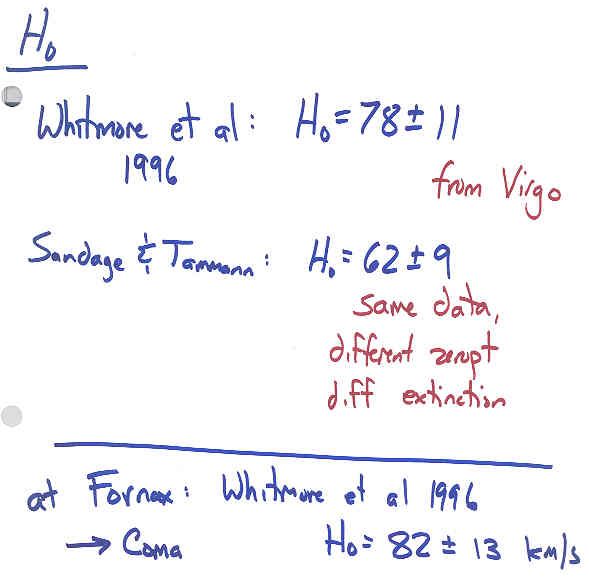 H₀
Whitmore et al: H₀ = 78 ± 11
1996
from Virgo
Sandage & Tammann: H₀ = 62 ± 9
same data,
different zeropt
diff extinction
at Fornax: Whitmore et al 1996
→ Coma H₀ = 82 ± 13 km/s